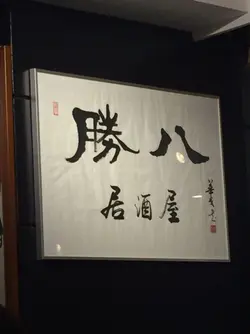 勝八
居酒屋